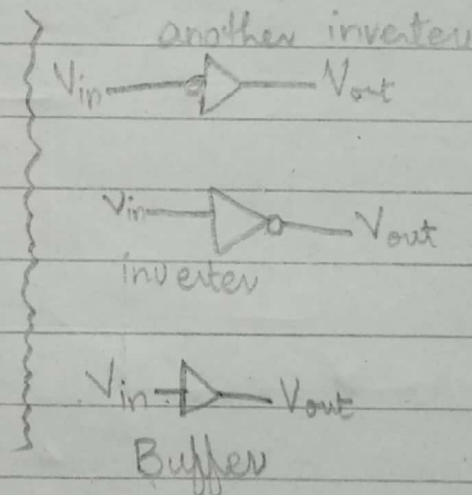 another inverter
Vin Vout
Vin Vout
inverter
Vin Vout
Buffer